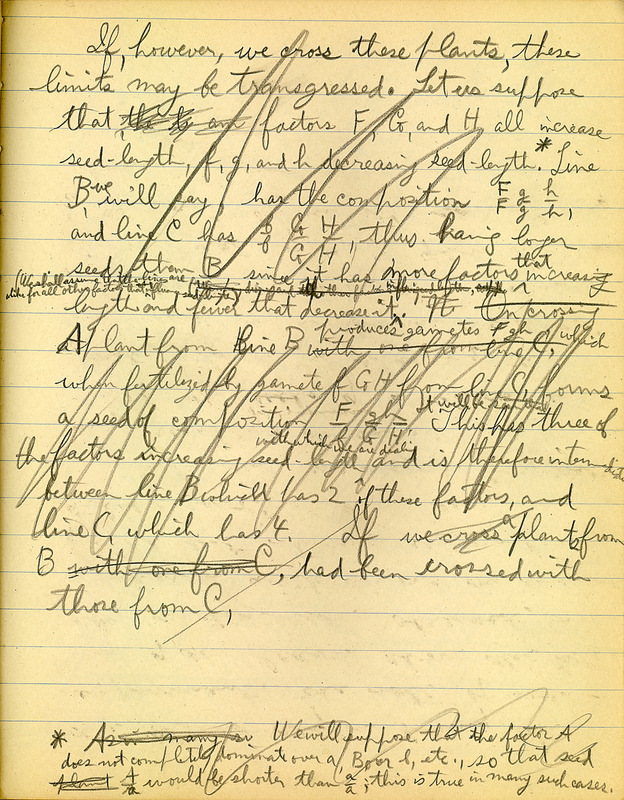 If, however, we cross these plants, these
limits may be transgressed. Let us suppose
that, factors F, G, and H all increase
seed-length, f, g, and h decreasing seed-length. * Line
B, we will say, has the composition F/F g/g h/h,
and line C has f/f G/G H/H, thus having longer
seeds than B since it has more factors that increasing
length and fewer that decrease it. If On crossing
A plant from line B with one from line C, produces gametes F g h which
when fertilized by gamete f G H from line C, forms
a seed of composition F/f g/G h/H. It will be This has three of
the factors increasing seed-length with which we are dealing and is therefore intermediate
between line B which has 2 of these factors, and
line C, which has 4. If we cross a plant from
B with one from C, had been crossed with
those from C,
* As in many We will suppose that the factor A
does not completely dominate over a, B over b, etc., so that seed
plant A/a would be shorter than a/a; this is true in many such cases.